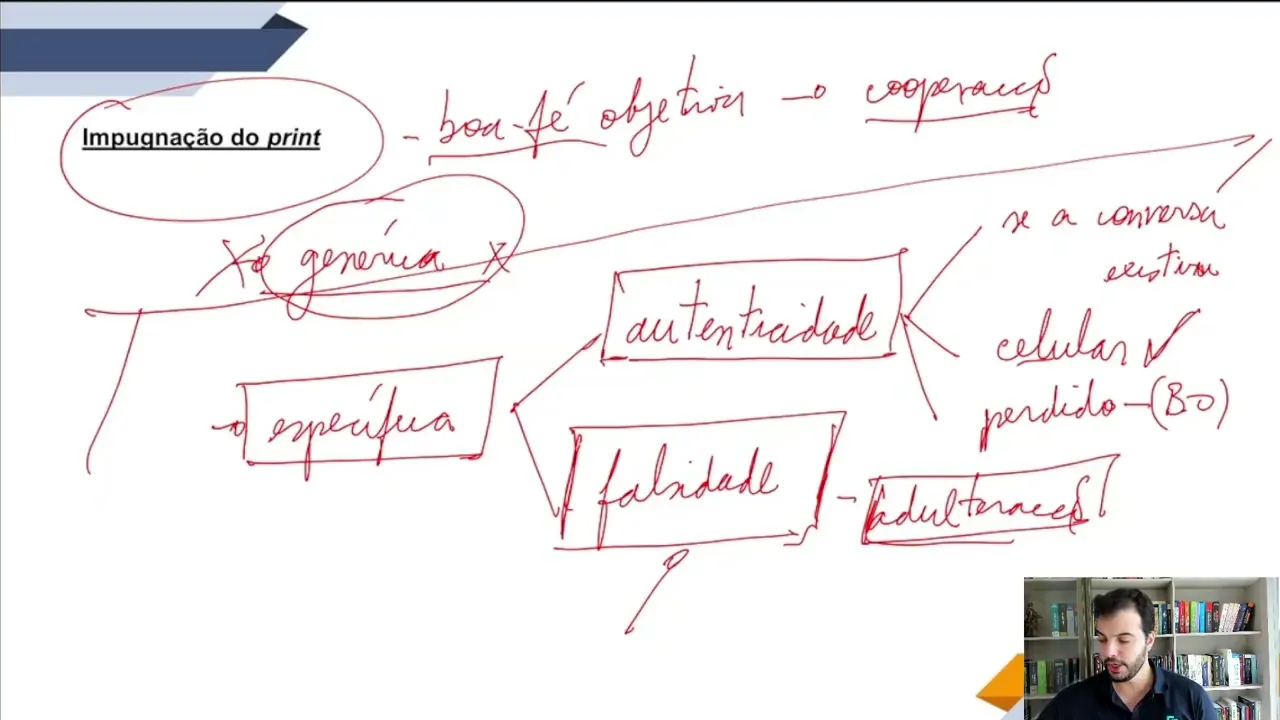 Impugnação do print
- boa-fé objetiva → cooperação
X→ genérica X
se a conversa
existiu
autenticidade
celular ✓
perdido - (BO)
→ específica
falsidade - adulteração